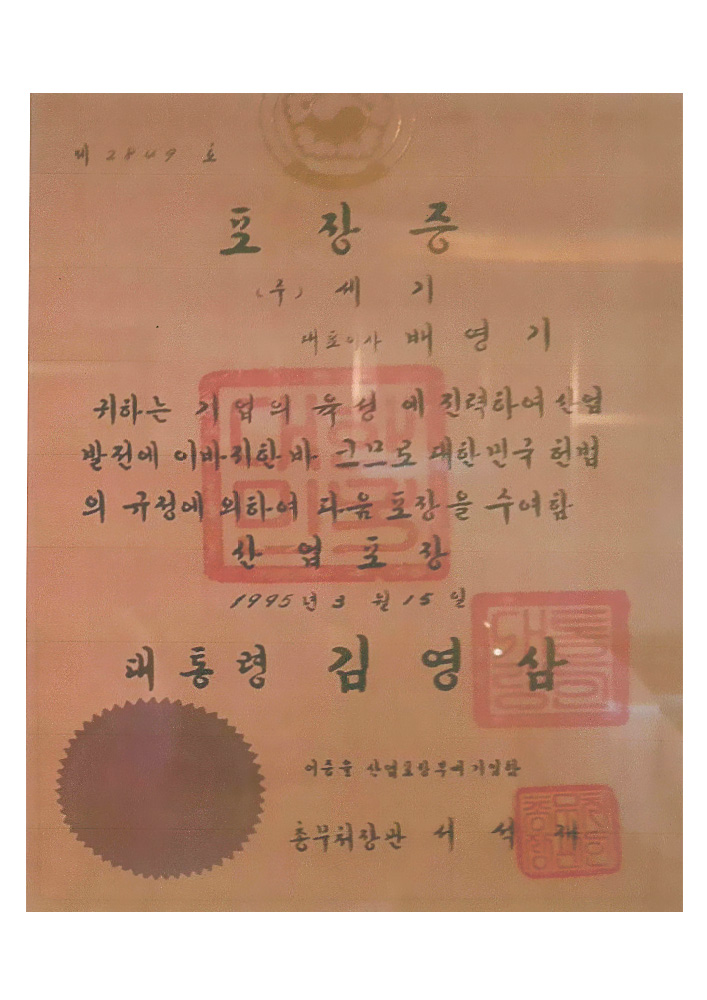 제 2849 호
포 장 증
(주) 세 기
대표이사 배 영 기
귀하는 기업의 육성에 진력하여 산업
발전에 이바지한바 크므로 대한민국 헌법
의 규정에 의하여 다음 포장을 수여함
산 업 포 장
1995년 3 월 15 일
대통령 김 영 삼
이증을 산업포장부에 기입함
총무처장관 서 석 재